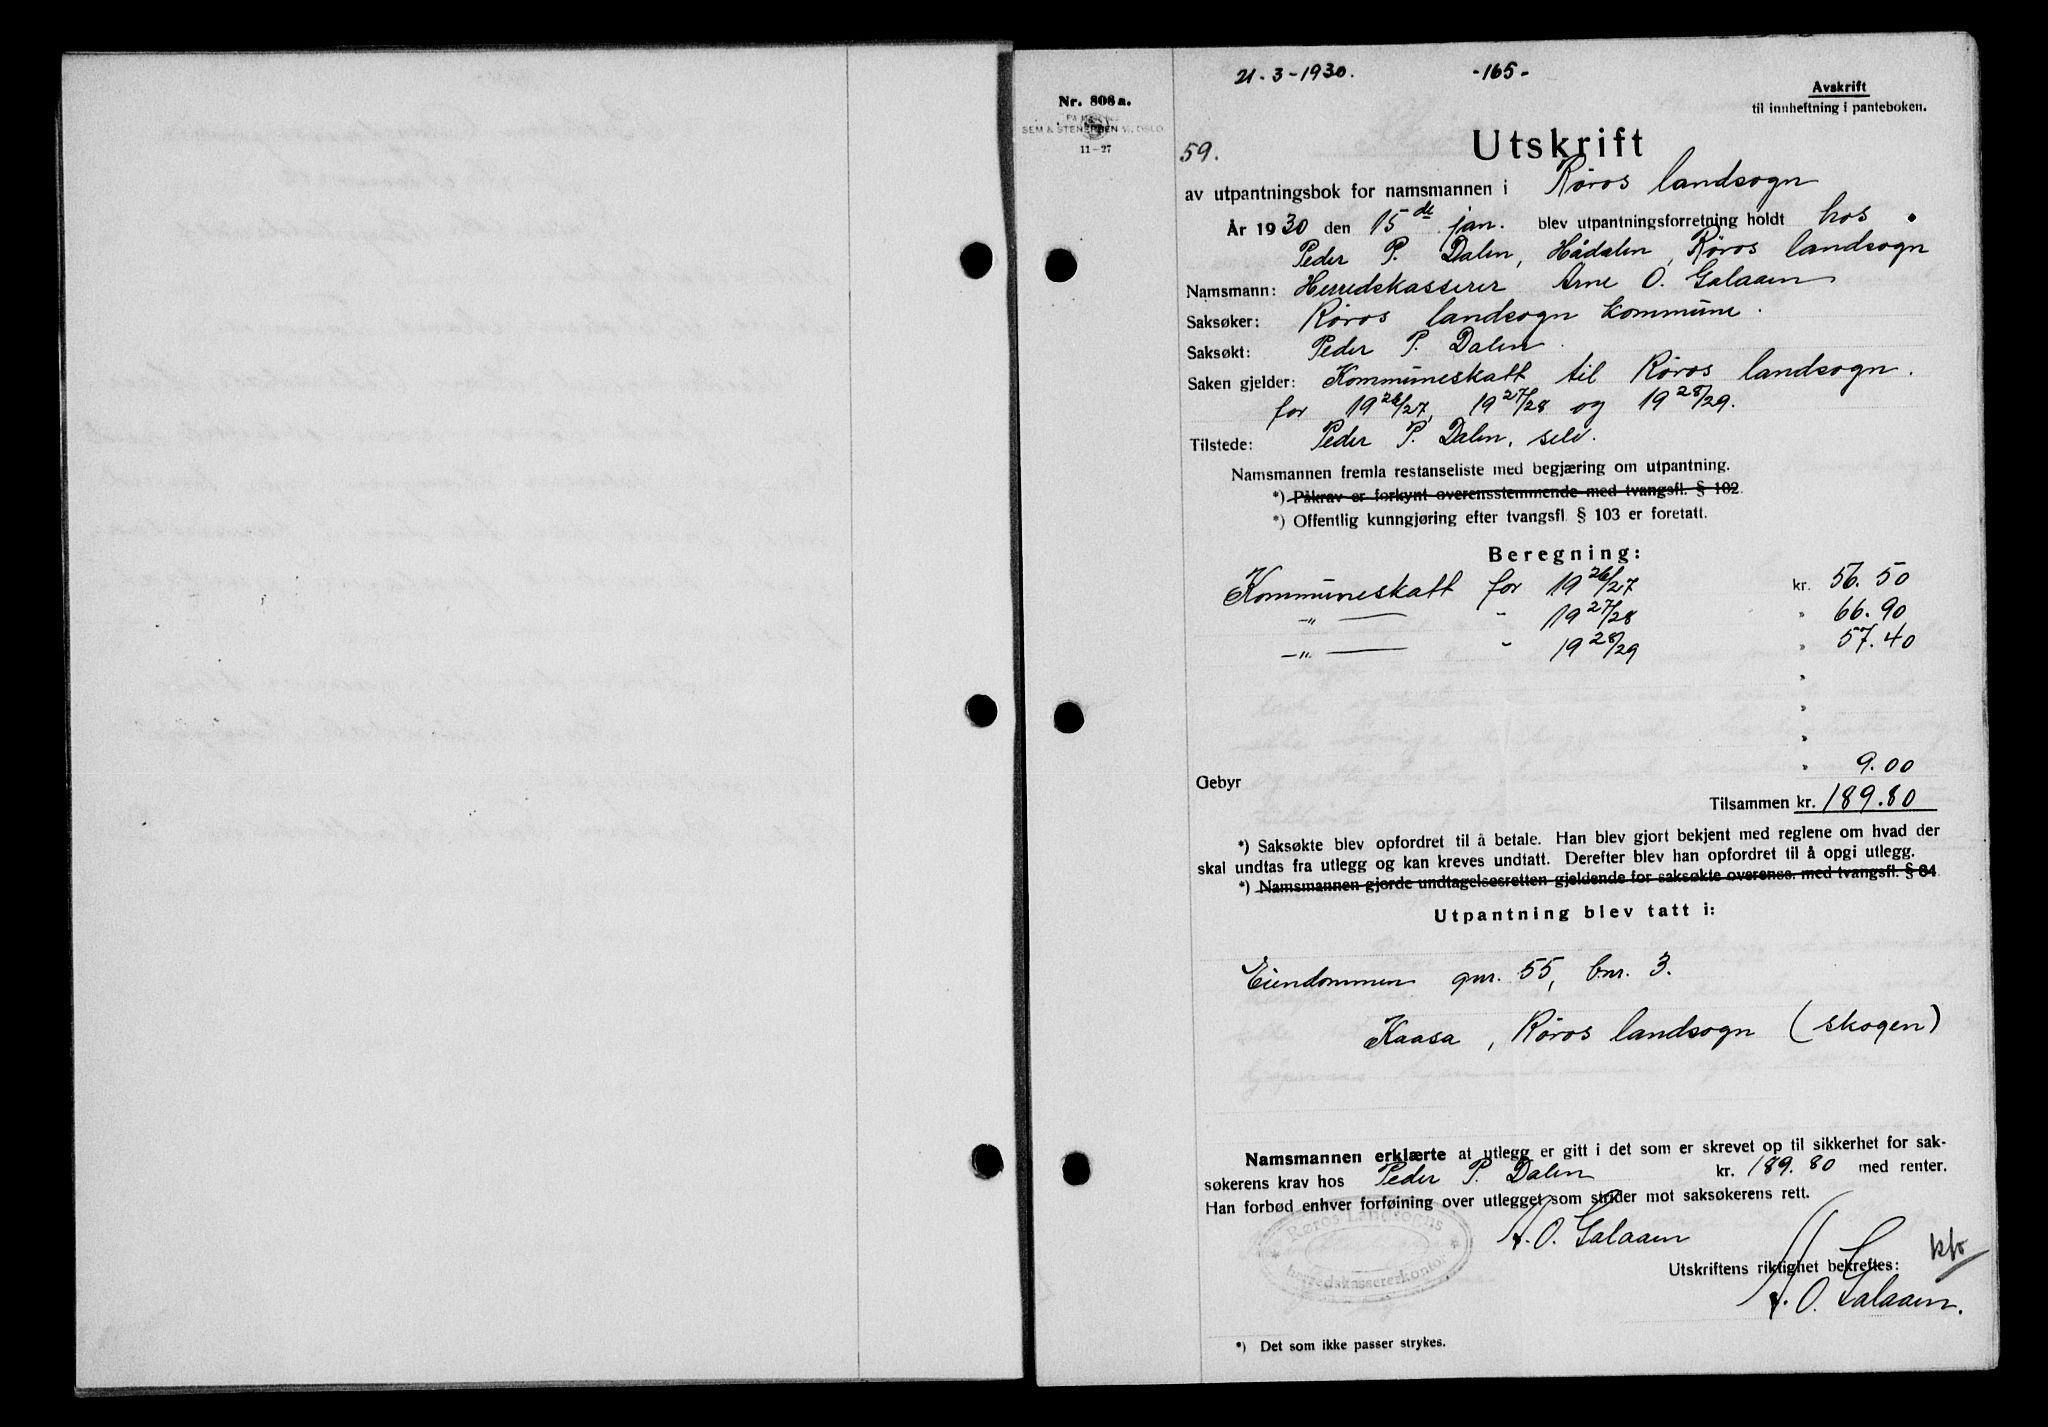 21-3-1930. -165-
Avskrift
til innheftning i panteboken.
Nr. 808a.
SEM & STENERSEN OSLO
11-27
59.
Utskrift
av utpantningsbok for namsmannen i Røros landsogn
År 1930 den 15de jan. blev utpantningsforretning holdt hos
Peder P. Dalen, Hådalen, Røros landsogn
Namsmann: Herredskasserer Arne O. Galaaen
Saksøker: Røros landsogn kommune.
Saksøkt: Peder P. Dalen.
Saken gjelder: Kommuneskatt til Røros landsogn.
for 1926/27, 1927/28 og 1928/29.
Tilstede: Peder P. Dalen, selv.
Namsmannen fremla restanseliste med begjæring om utpantning.
*) Påkrav er forkynt overensstemmende med tvangsfl. § 102.
*) Offentlig kunngjøring efter tvangsfl. § 103 er foretatt.
Beregning:
Kommuneskatt for 1926/27 kr. 56.50
-„- " 1927/28 " 66.90
-„- " 1928/29 " 57.40
"
"
"
Gebyr " 9.00
Tilsammen kr. 189.80
*) Saksøkte blev opfordret til å betale. Han blev gjort bekjent med reglene om hvad der
skal undtas fra utlegg og kan kreves undtatt. Derefter blev han opfordret til å opgi utlegg.
*) Namsmannen gjorde undtagelsesretten gjeldende for saksøkte overenss. med tvangsfl. § 84
Utpantning blev tatt i:
Eiendommen gnr. 55, bnr. 3.
Kaasa, Røros landsogn (skogen)
Namsmannen erklærte at utlegg er gitt i det som er skrevet op til sikkerhet for sak-
søkerens krav hos Peder P. Dalen kr. 189.80 med renter.
Han forbød enhver forføining over utlegget som strider mot saksøkerens rett.
Røros Landsogns
herredskassererkontor
A. O. Galaaen
Utskriftens riktighet bekreftes:
A. O. Galaaen.
*) Det som ikke passer strykes.